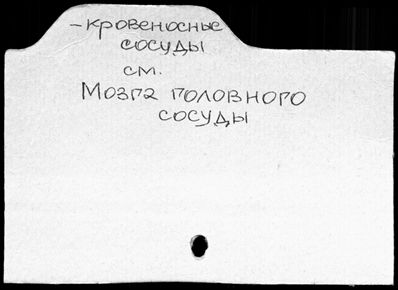 - кровеносные
сосуды
см.
Мозга головного
сосуды